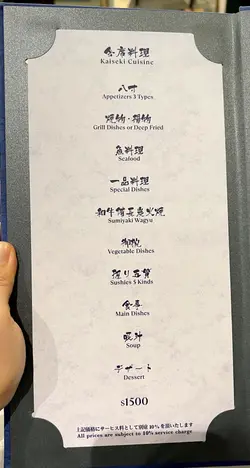 会席料理
Kaiseki Cuisine
八寸
Appetizers 3 Types
焼物・揚物
Grill Dishes or Deep Fried
魚料理
Seafood
一品料理
Special Dishes
和牛備長炭火焼
Sumiyaki Wagyu
御飯
Vegetable Dishes
握り五貫
Sushies 5 Kinds
食事
Main Dishes
吸汁
Soup
デザート
Dessert
$1500
上記価格にサービス料として別途10%を頂いたします
All prices are subject to 10% service charge